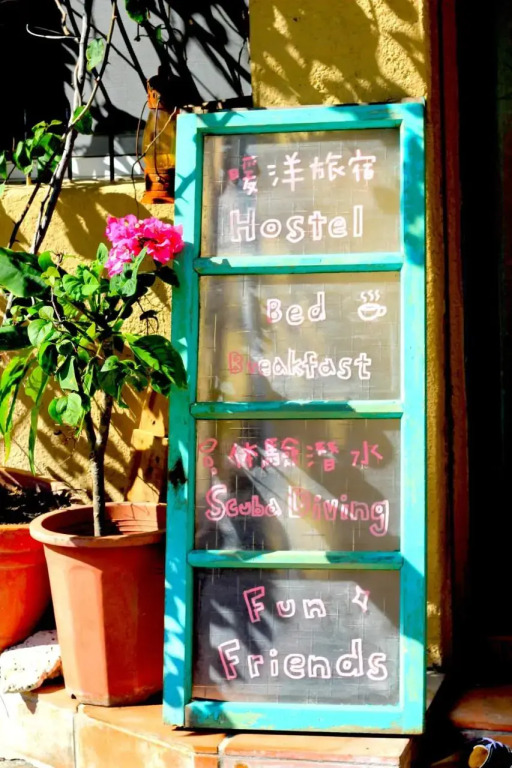 暖洋旅宿
Hostel
Bed
Breakfast
體驗潛水
Scuba Diving
Fun
Friends